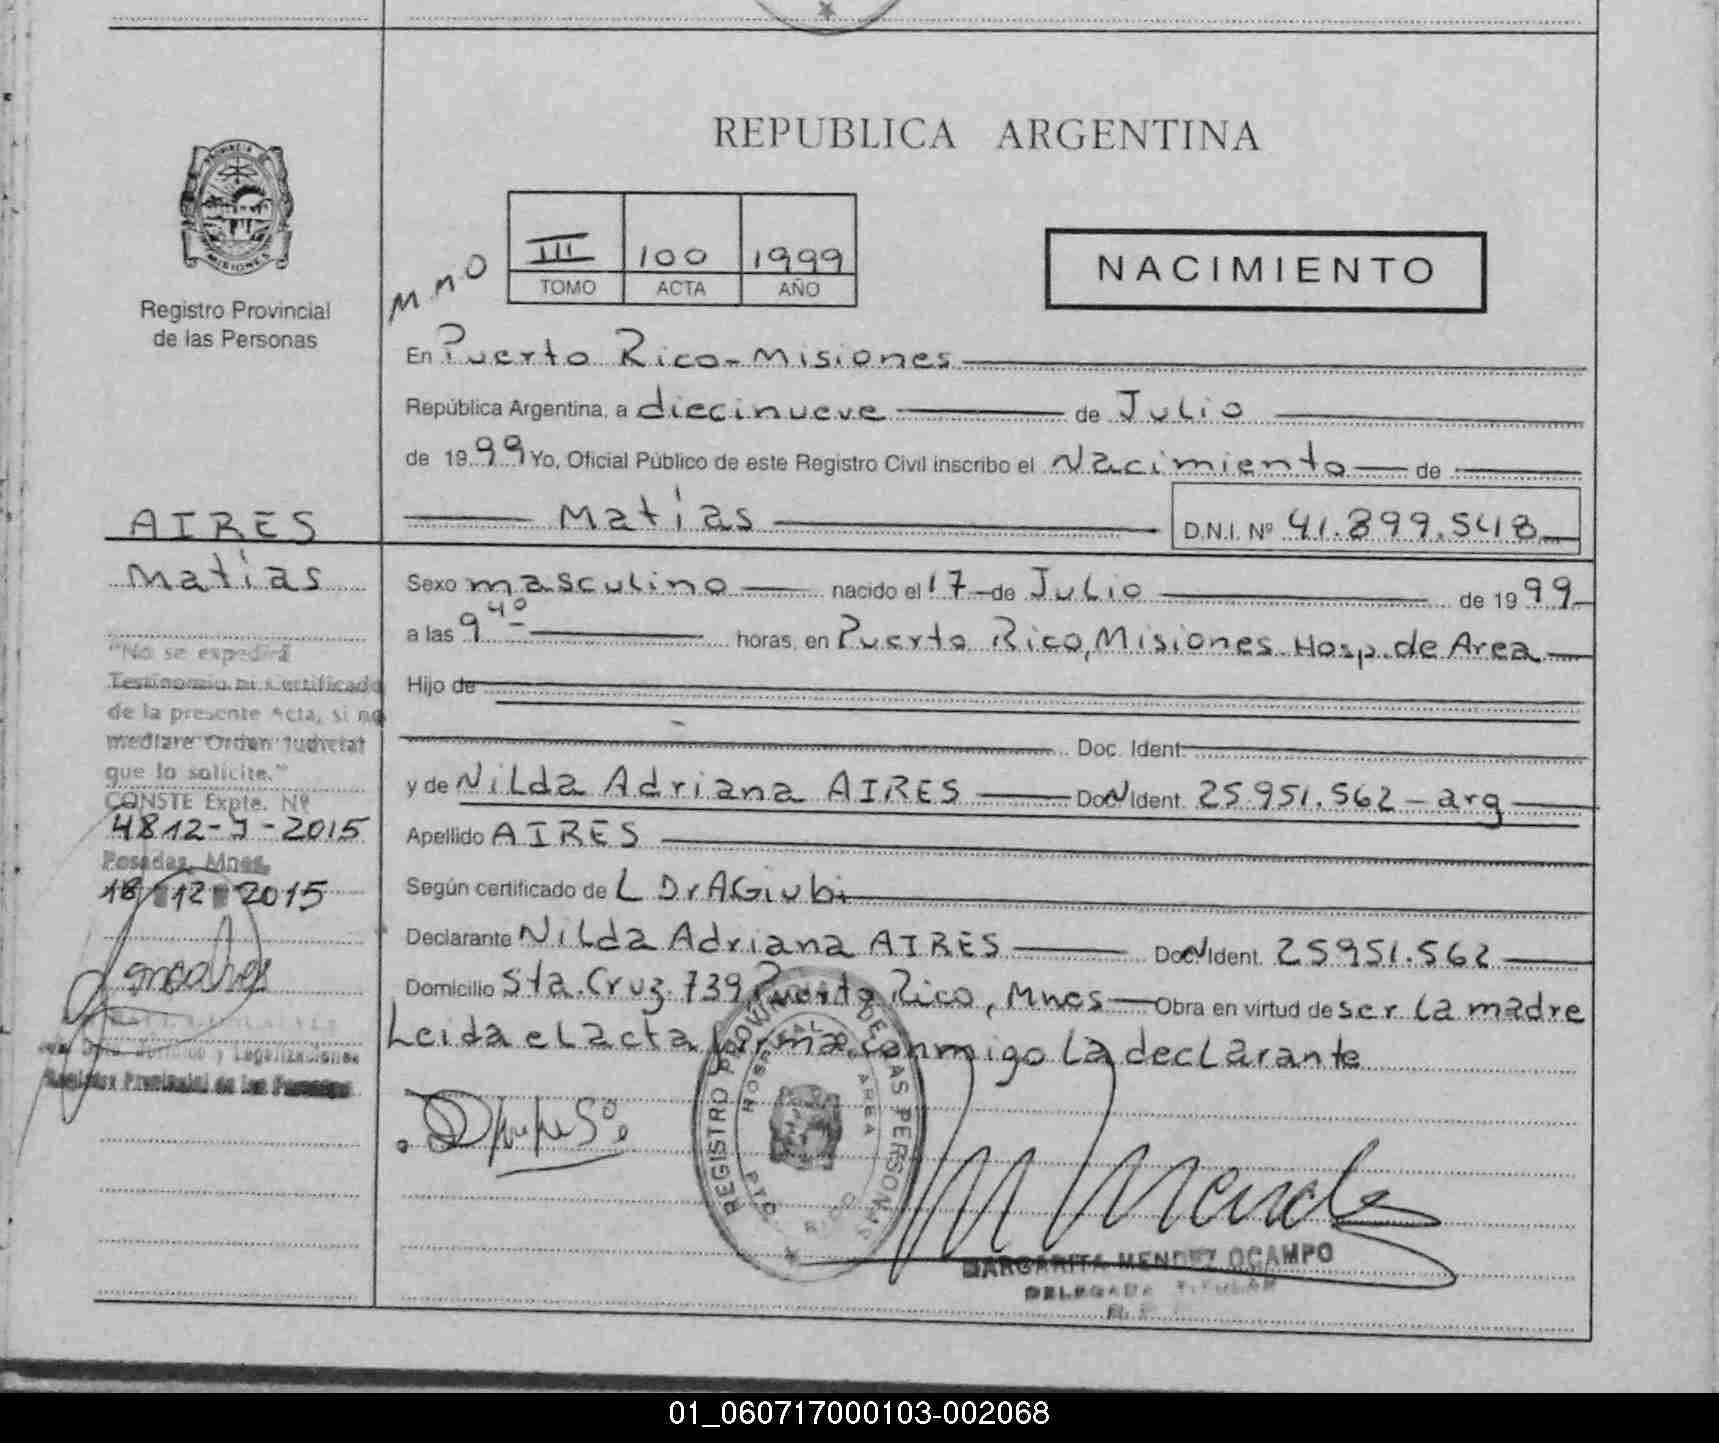 REPUBLICA ARGENTINA
PROVINCIA DE
MISIONES
Registro Provincial
de las Personas
M.n.O
III 100 1999
TOMO ACTA AÑO
NACIMIENTO
En Puerto Rico-Misiones
República Argentina, a diecinueve de Julio
de 1999 Yo, Oficial Público de este Registro Civil inscribo el Nacimiento de
Matías D.N.I. Nº 41.899.548
AIRES
Matías
Sexo masculino nacido el 17 de Julio de 1999
a las 9 40 horas, en Puerto Rico, Misiones Hosp. de Area
Hijo de
Doc. Ident.
y de Nilda Adriana AIRES Doc. Ident. 25951.562 - arg
Apellido AIRES
Según certificado de L Dr A Giubi
Declarante Nilda Adriana AIRES Doc. Ident. 25951.562
Domicilio Sta. Cruz 739 Puerto Rico, Mnes Obra en virtud de ser la madre
Leida el acta firma conmigo la declarante
"No se expedirá
Testimonio ni Certificado
de la presente Acta, si no
mediare Orden Judicial
que lo solicite."
CONSTE Expte. Nº
4812-J-2015
Posadas, Mnes.
18 12 2015
Jurídico y Legalizaciones
Registro Provincial de las Personas
REGISTRO PROVINCIAL DE LAS PERSONAS
HOSPITAL AREA
PTO. RICO
M Mendez
MARGARITA MENDEZ OCAMPO
DELEGADA TITULAR
01_060717000103-002068